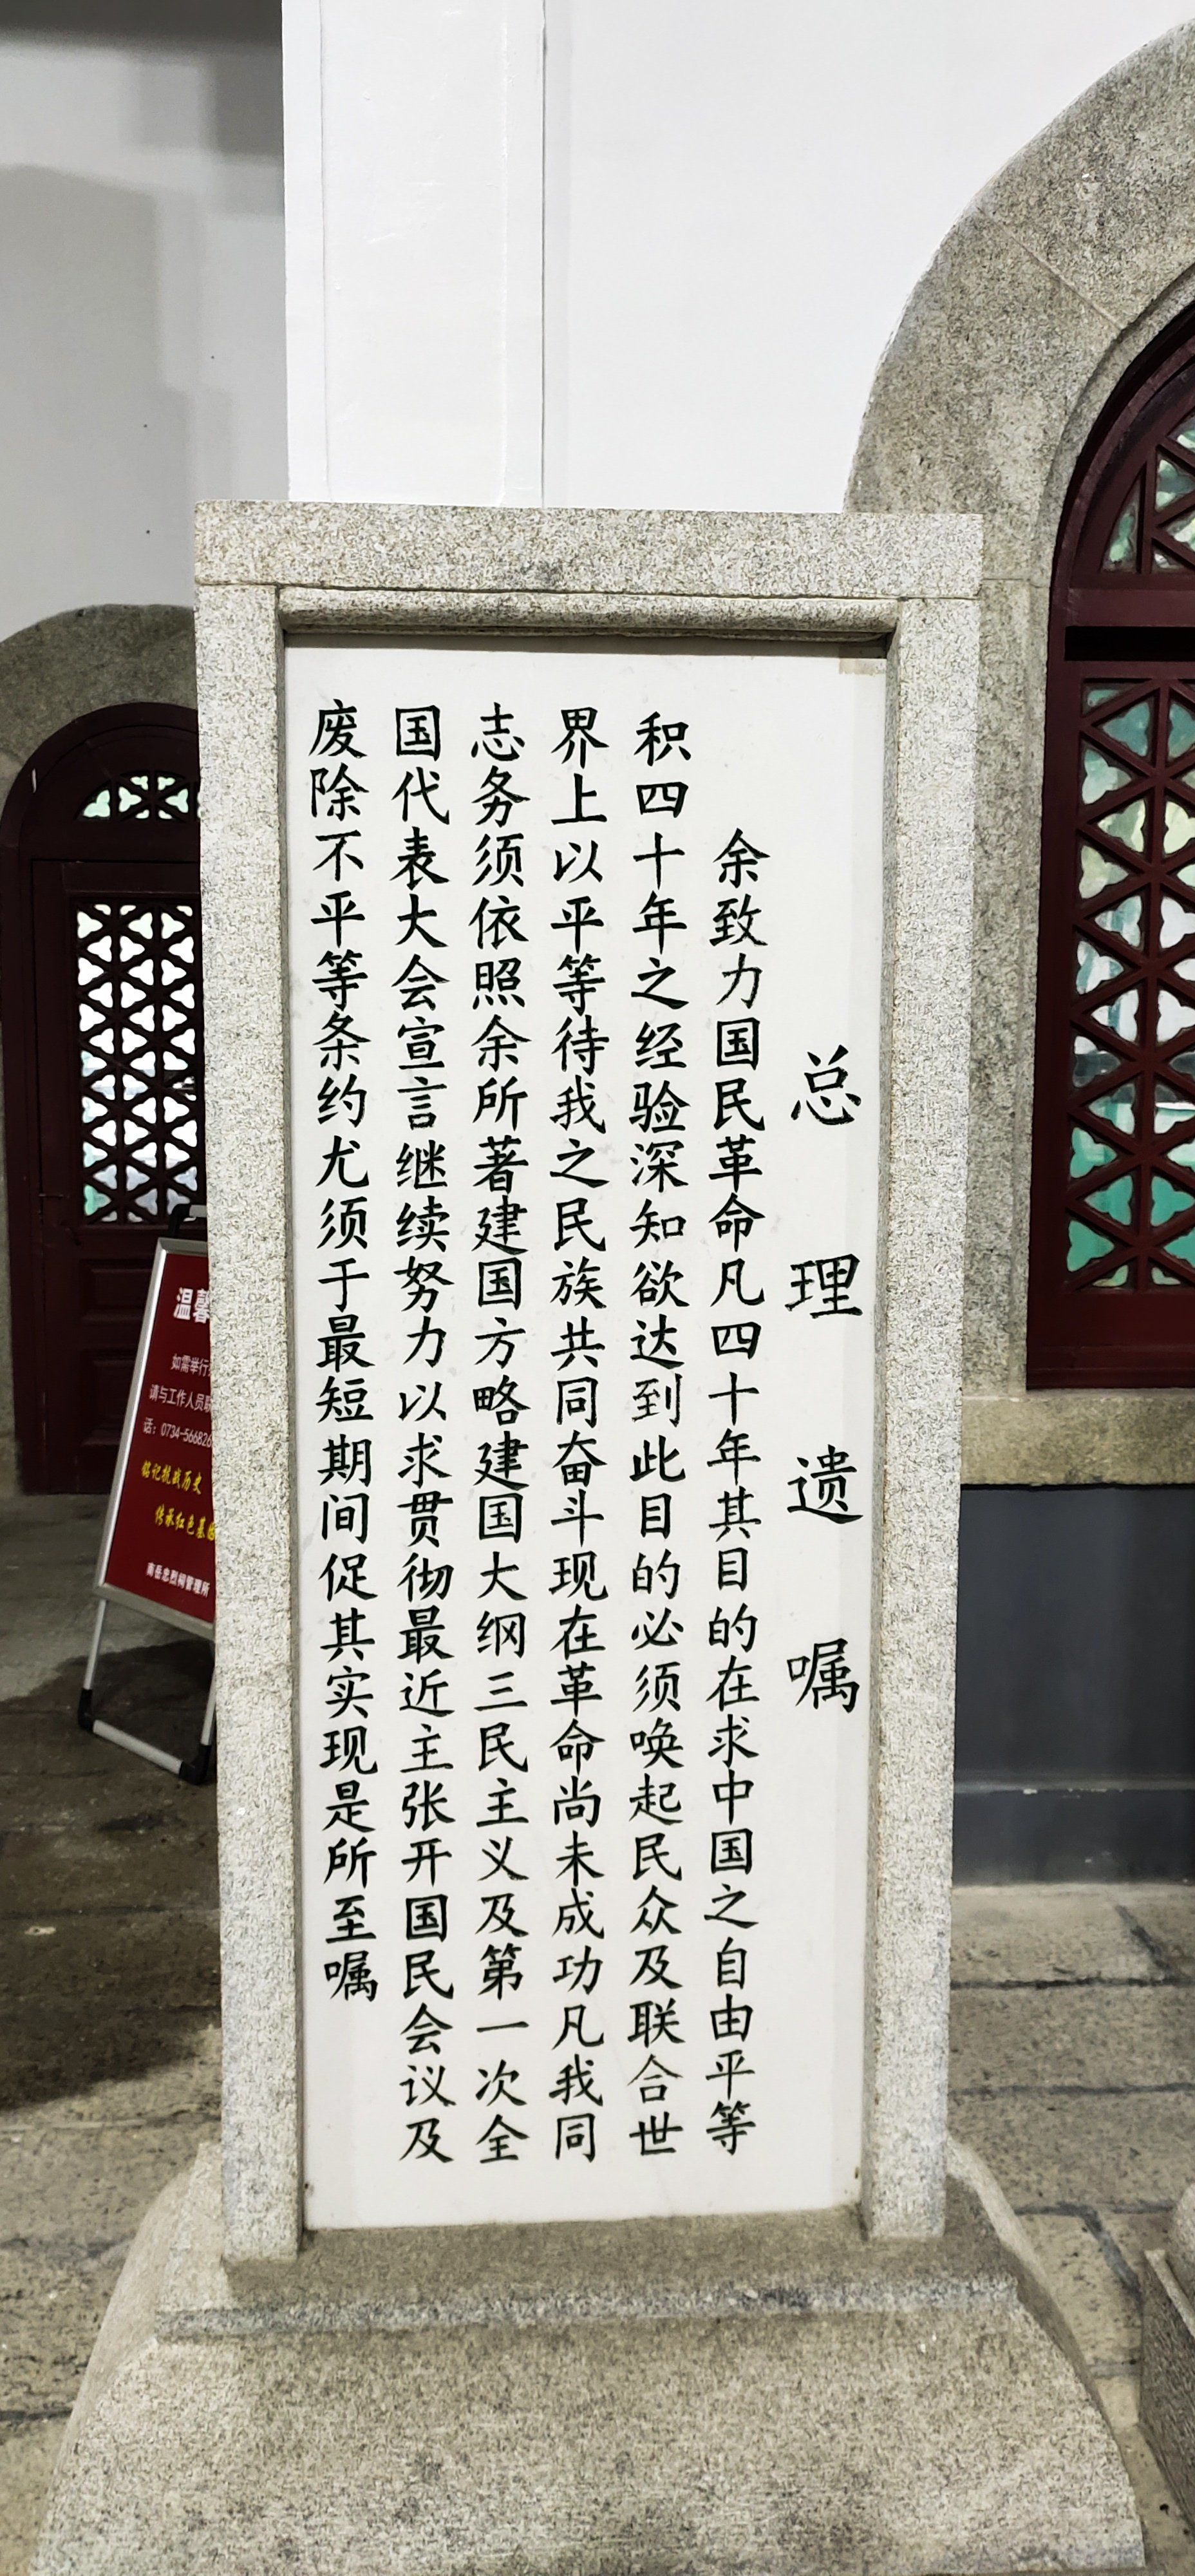 总理遗嘱
余致力国民革命凡四十年其目的在求中国之自由平等
积四十年之经验深知欲达到此目的必须唤起民众及联合世
界上以平等待我之民族共同奋斗现在革命尚未成功凡我同
志务须依照余所著建国方略建国大纲三民主义及第一次全
国代表大会宣言继续努力以求贯彻最近主张开国民会议及
废除不平等条约尤须于最短期间促其实现是所至嘱
温馨
如需举行
请与工作人员联
话：0734-56682
铭记抗战历史
传承红色基
南岳忠烈祠管理所